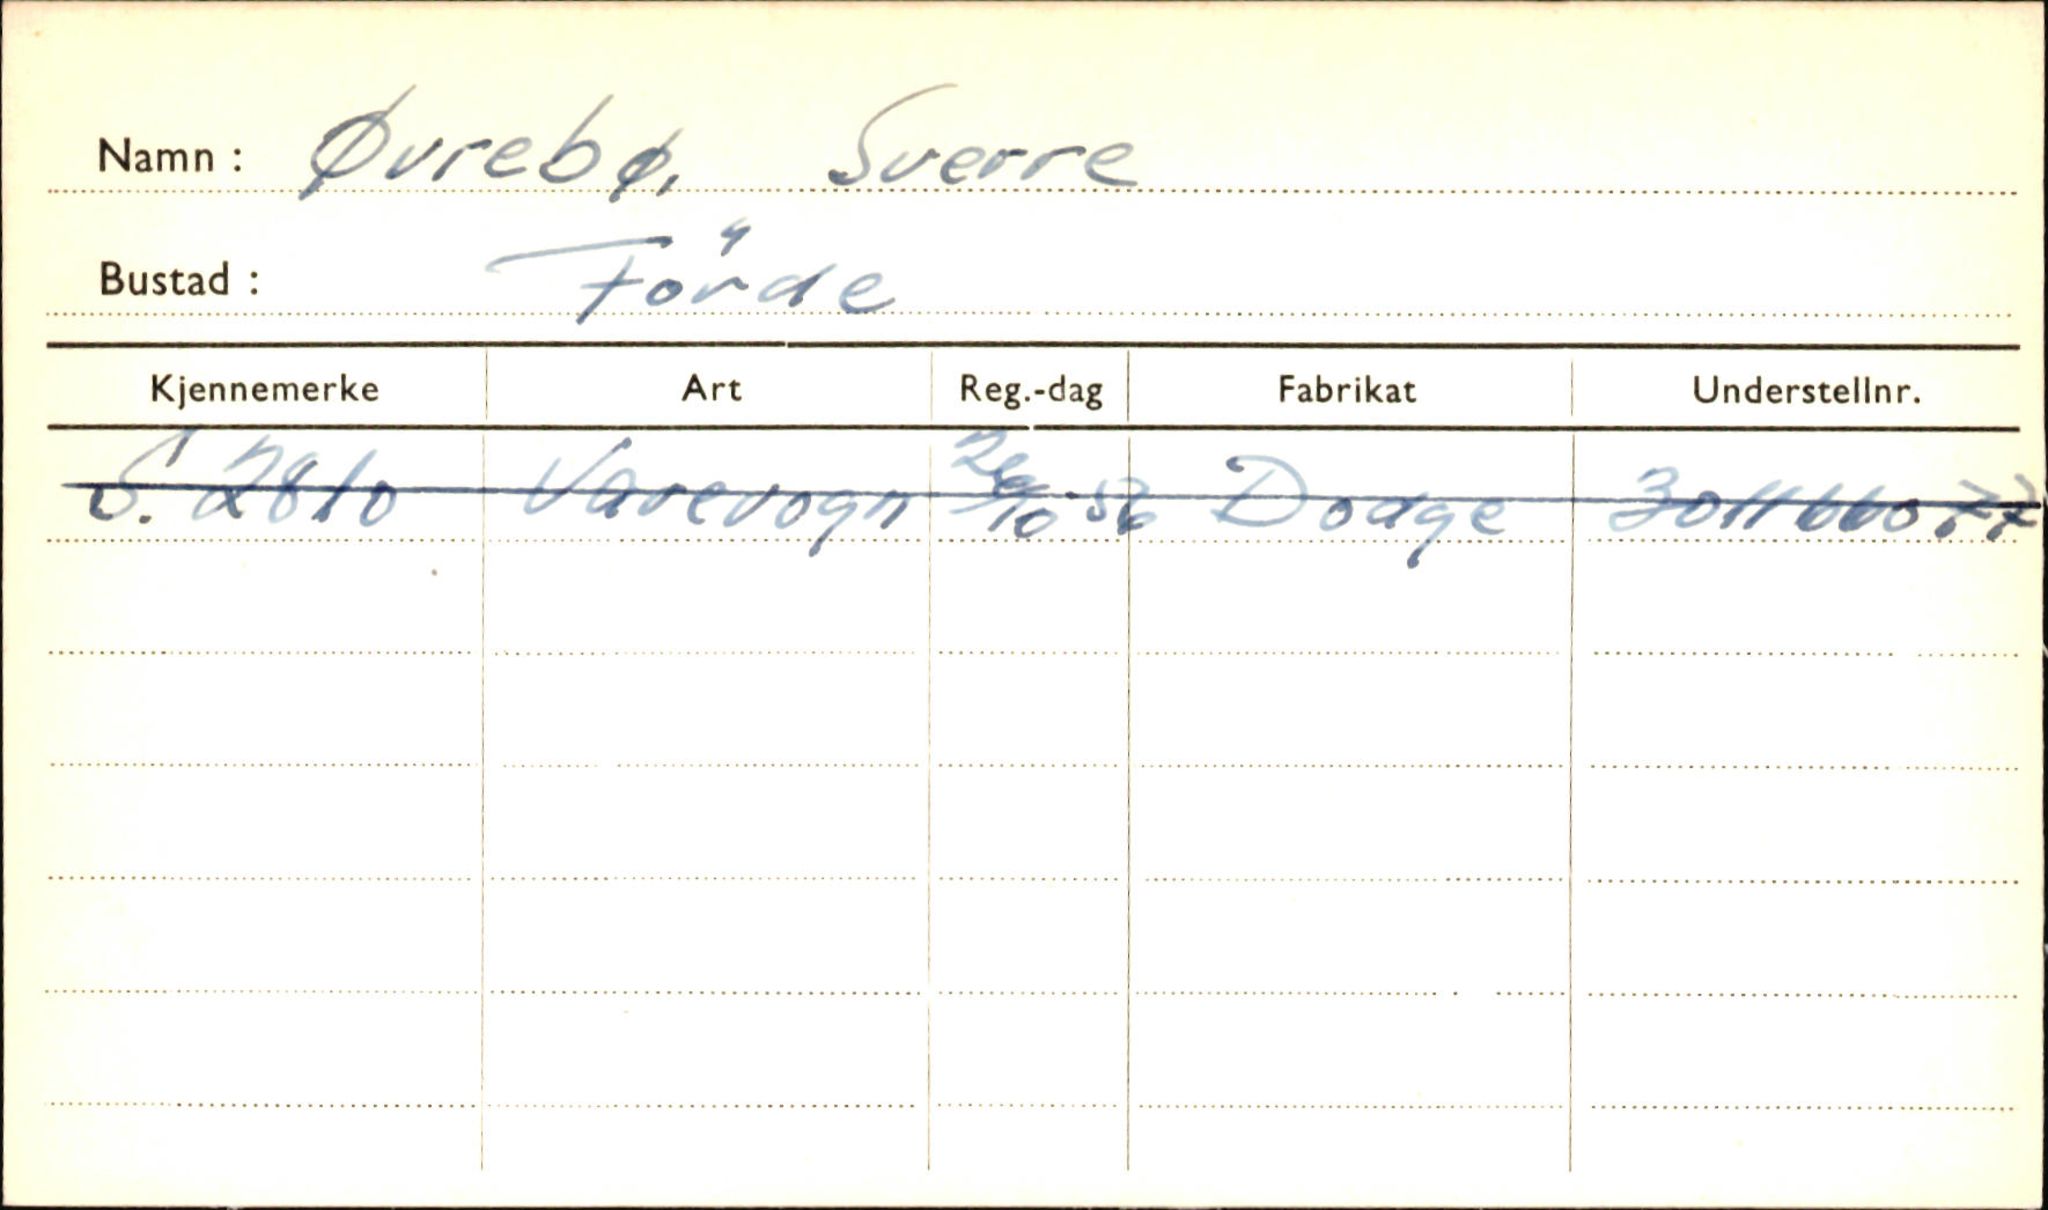 Namn : Øvrebø, Sverre
Bustad : Förde
Kjennemerke Art Reg.-dag Fabrikat Understellnr.
S. 2810 Varevogn 26/10-56 Dodge 301166077